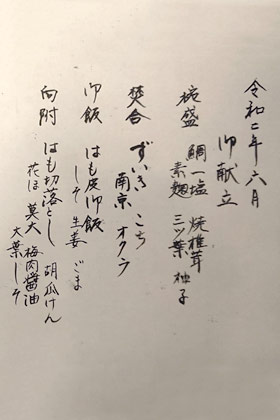 令和二年六月
御献立
椀盛 鯛一塩 焼椎茸
素麺 三ツ葉 柚子
焚合 ずいき こち
南京 オクラ
御飯 はも皮御飯
しそ 生姜 ごま
向附 はも切落とし 胡瓜けん
花ほ 莫大 梅肉醤油
大葉しそ